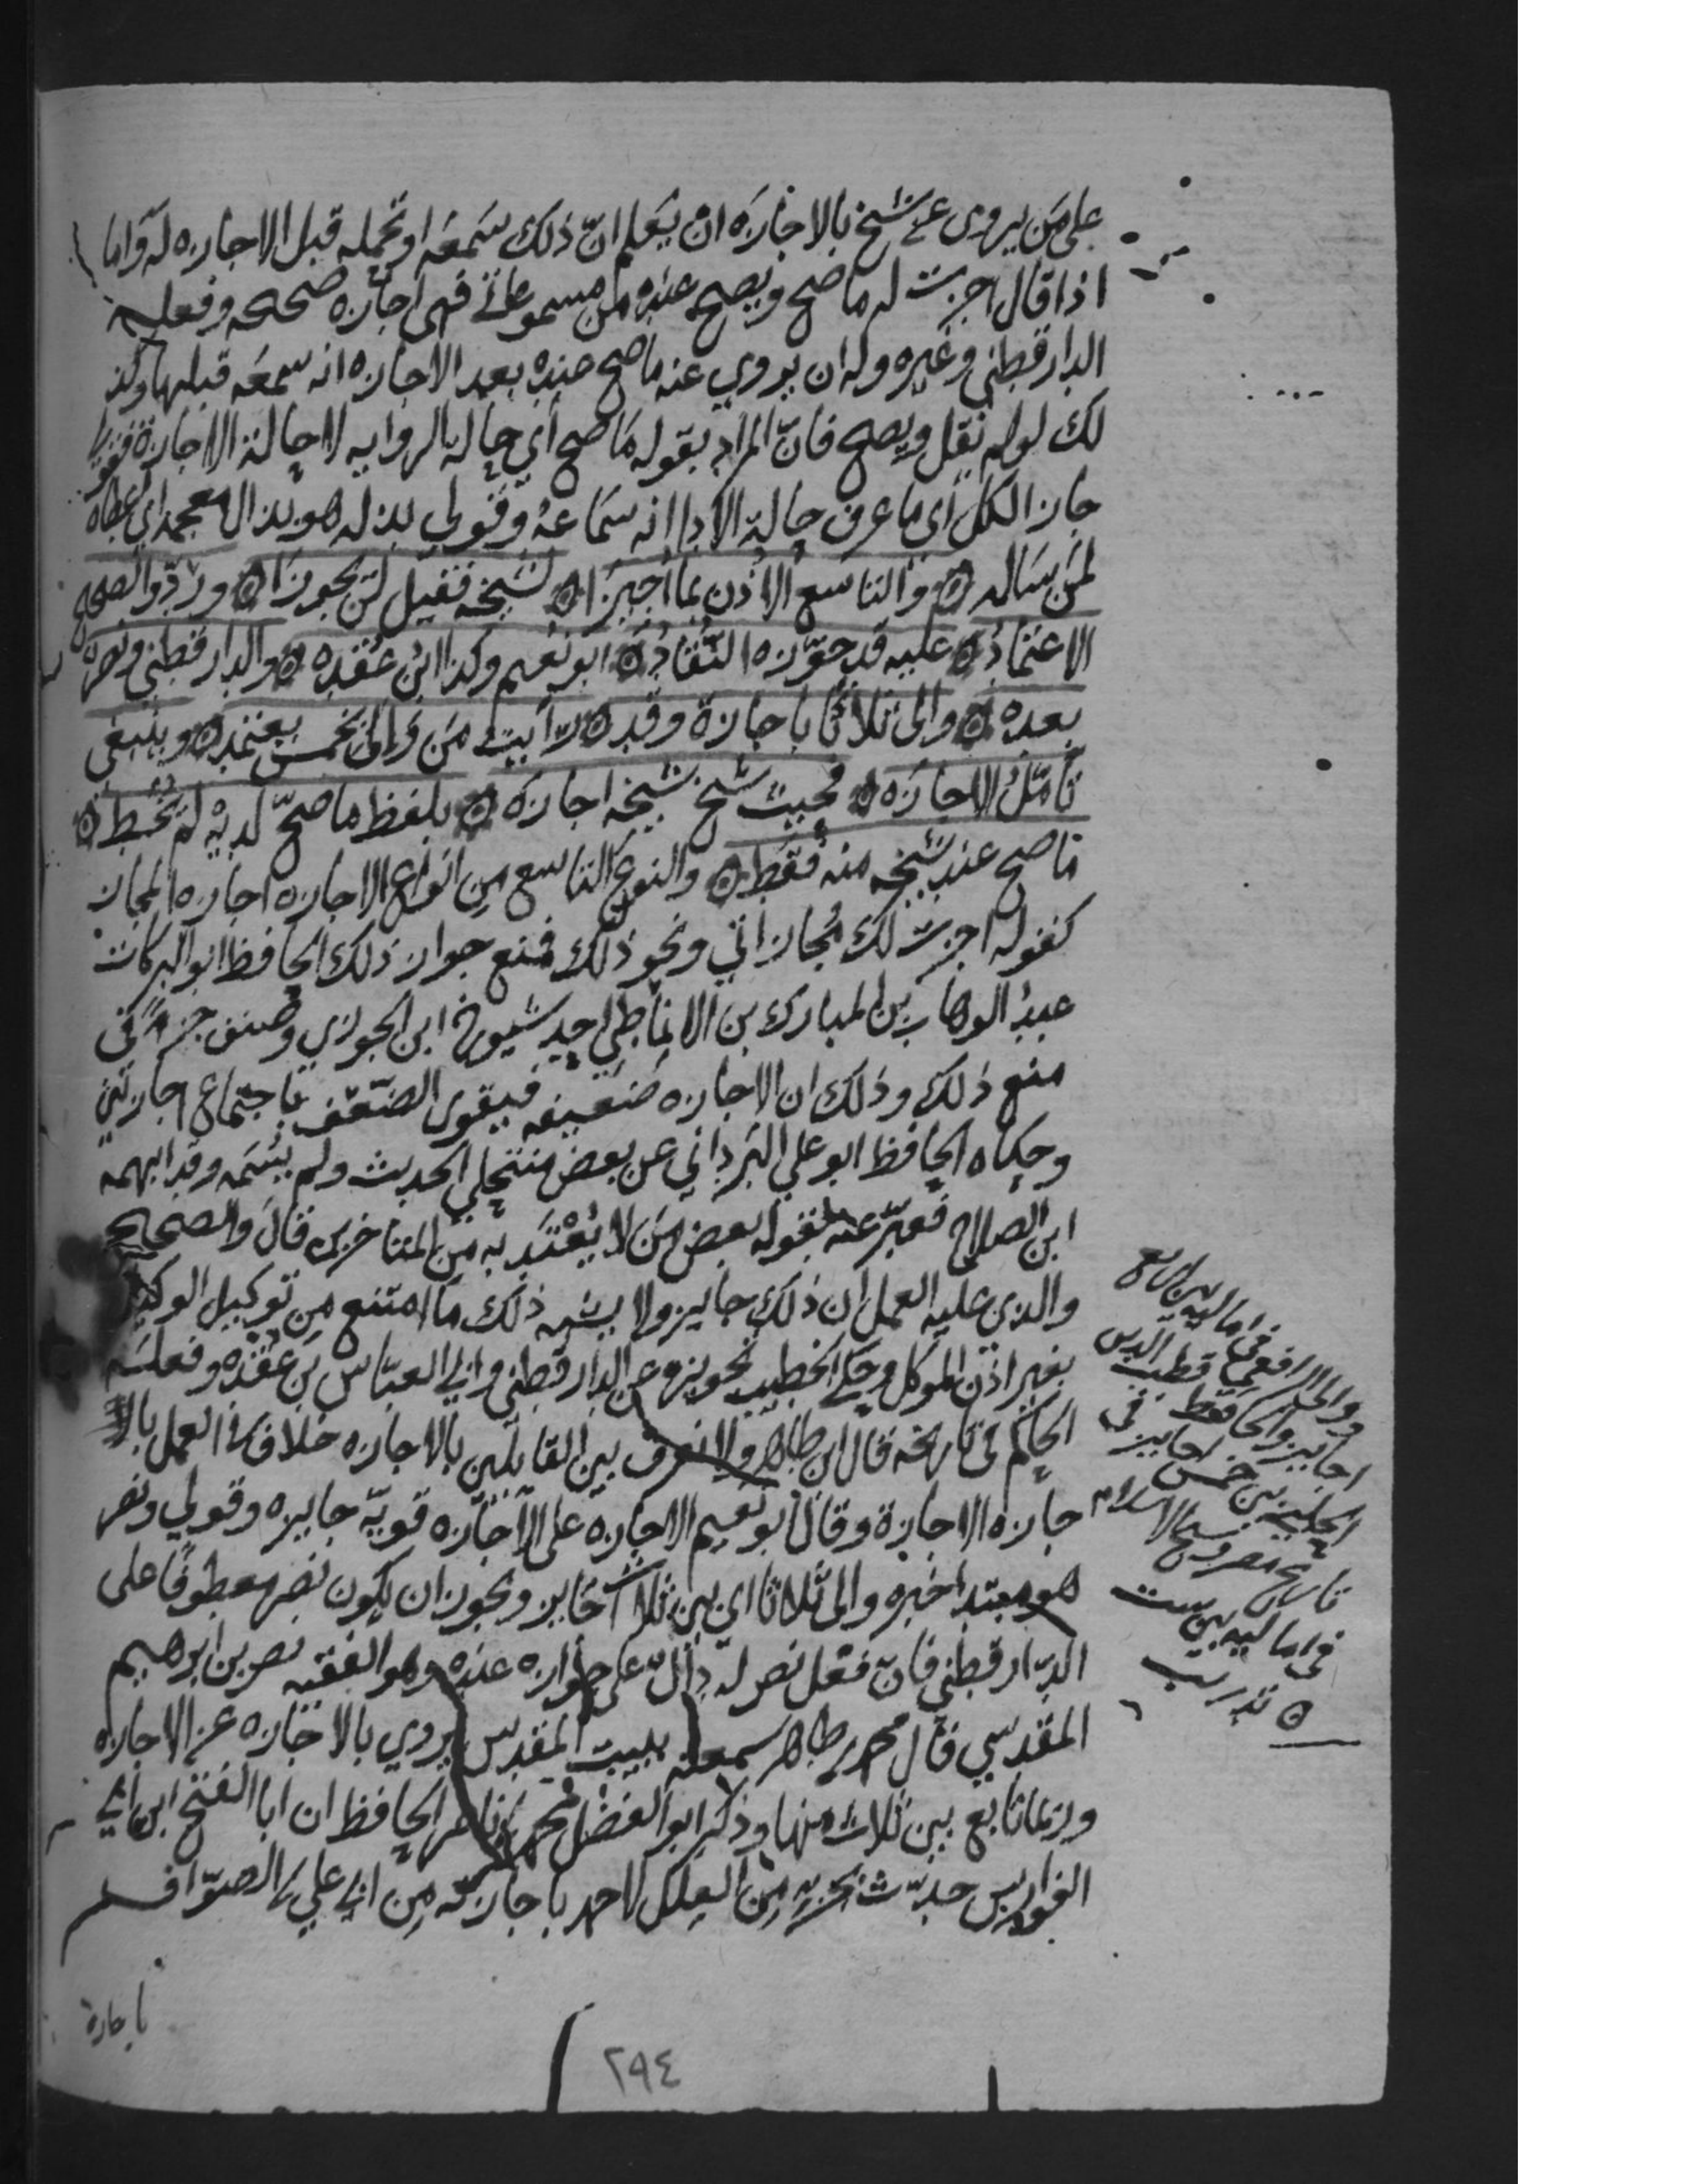 على مَن يروى عن شيخ بالاجازَه ان يَعلم انّ ذلك سَمعَه او تحمله قبل الاجازه له وَاما
اذا قال اجزت له ما صح ويصح عنده من مسموعاتى فهى اجازه صحيحه وفعله
الدارقطنى وغيره وله ان يروي عنه ما صح عنده بعد الاجازه انه سمعَه قبلها وكذ
لك لو لم نقل ويصح فانّ المراد بقوله مَا صح أي حاله الروايه لا حالة الاجازة فقولي
جاز الكل أى ما عرف حالة الادا انه سَمَاعهُ وقولي بذله هو بذال معجمه اي اعطاه
لمَن سَاله ۞ والتاسع الاذن بما اُجيزَا ۞ لشيخه فقيل لن يجوزَا ۞ ورُدّ والصحيح
الاعتمادُ ۞ عليه قد جوّزه النُّقادُ ۞ ابو نعيم وكذا ابنُ عُقده ۞ والدارقطنى ونصر
بعده ۞ والى ثلاثًا باجازة وقد ۞ رَأيت مَن وَالى بخمس يعتمد ۞ وينبغى
تأمّلُ الاجازَه ۞ فحيث شيخ شيخه اجازَه ۞ بلفظ ما صحّ لديه لم يُخط ۞
ما صح عند شيخه منه فقَط ۞ والنوع التاسع مِن انواع الاجازه اجازه المجاز
كقوله اجزت لك مُجازاتي ونحو ذلك فمنع جواز ذلك الحافظ ابو البركات
عبدُ الوهاب بن المبارك بن الانماطي احد شيوخ ابن الجوزي وصنف جزءًا في
منع ذلك وذلك ان الاجازه ضَعيفه فيقوى الضّعف باجتماع اجازتين
وحكاه الحافظ ابو على البَرَداني عن بعض منتحلي الحديث ولم يُسَمه وقد ابهمه
ابن الصلاح فعبّر عنه بقوله بعض مَن لا يُعْتَد به من المتاخرين قالَ والصحيح
والذي عليه العمل ان ذلك جايز ولا يشبه ذلك ما امتنع من توكيل الوكيل
بغير اذن الموكل وحكي الخطيب تجويزه عن الدارقطنى وابي العبّاس بن عُقده وفعله
الحاكم فى تاريخه قال ابن طاهر ولا نعرف بين القايلين بالاجازه خلافا فى العمل بالا
جازه الاجازة وقال ابو نعيم الاجازه على الاجازه قويّة جايزه وقولي ونصر
هو مبتدا خبره والى ثلاثا اى بين ثلاث اجايز ويجوز ان يكون نصر معطوفًا على
الدّارقطنى فانّ فعل نصر له دالّ على جوازه عنده وهو الفقيه نصر بن ابرهيم
المقدسي قال محمد بن طاهر سمعته ببيت المقدس يروي بالاجازه عن الاجازه
وربما تابع بين ثلاث منها وذكر ابو الفضل محمد بن ناصر الحافظ ان ابا الفتح ابن ابي
الفوارس حدّث بجزء من العلل لاحمد باجازته مِن ابي علي بن الصوّاف
باجازة
ووالى الرافعى فى اماليه بين اربع
اجايز والحافظ قطب الدين
الحلبى بين خمس اجايز فى
تاريخ مصر وشيخ الاسلام
فى اماليه بين ست
۞ تدريب
٢٩٤